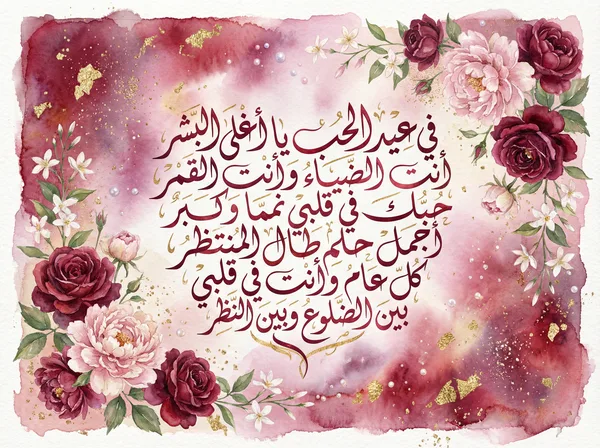 في عيد الحُب يا أغلى البَشر
أنت الضياء وأنت القمر
حُبّك في قلبي نمما وكبر
أجمل حلم طال المُنتظر
كلّ عام وأنت في قلبي
بين الضّلوع وبين النّظر